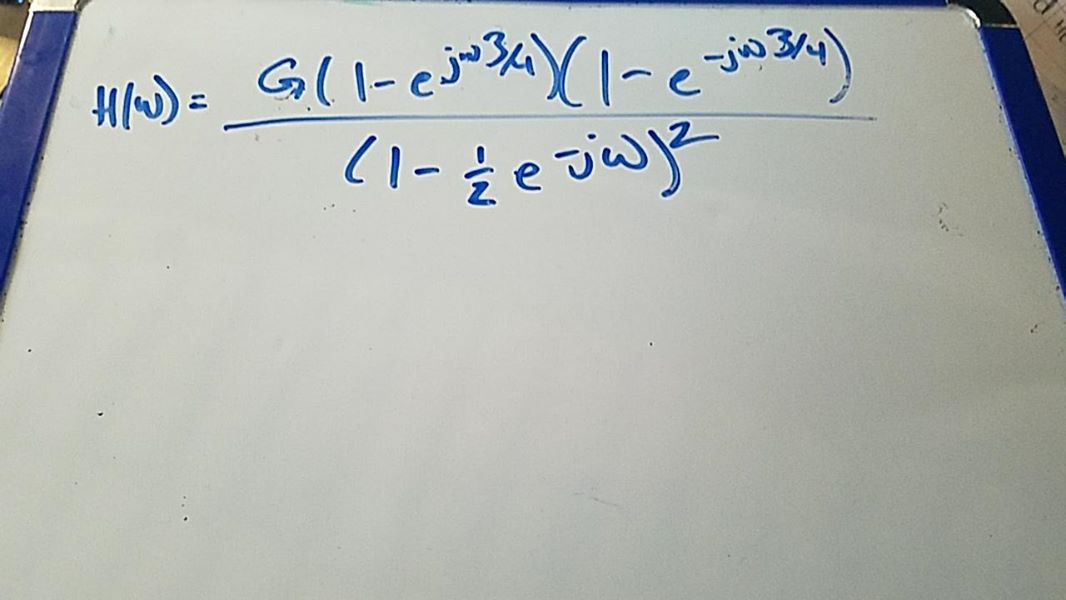 H(ω) = G(1-e^{jω3/4})(1-e^{-jω3/4}) / (1-\frac{1}{2}e^{-jω})^2